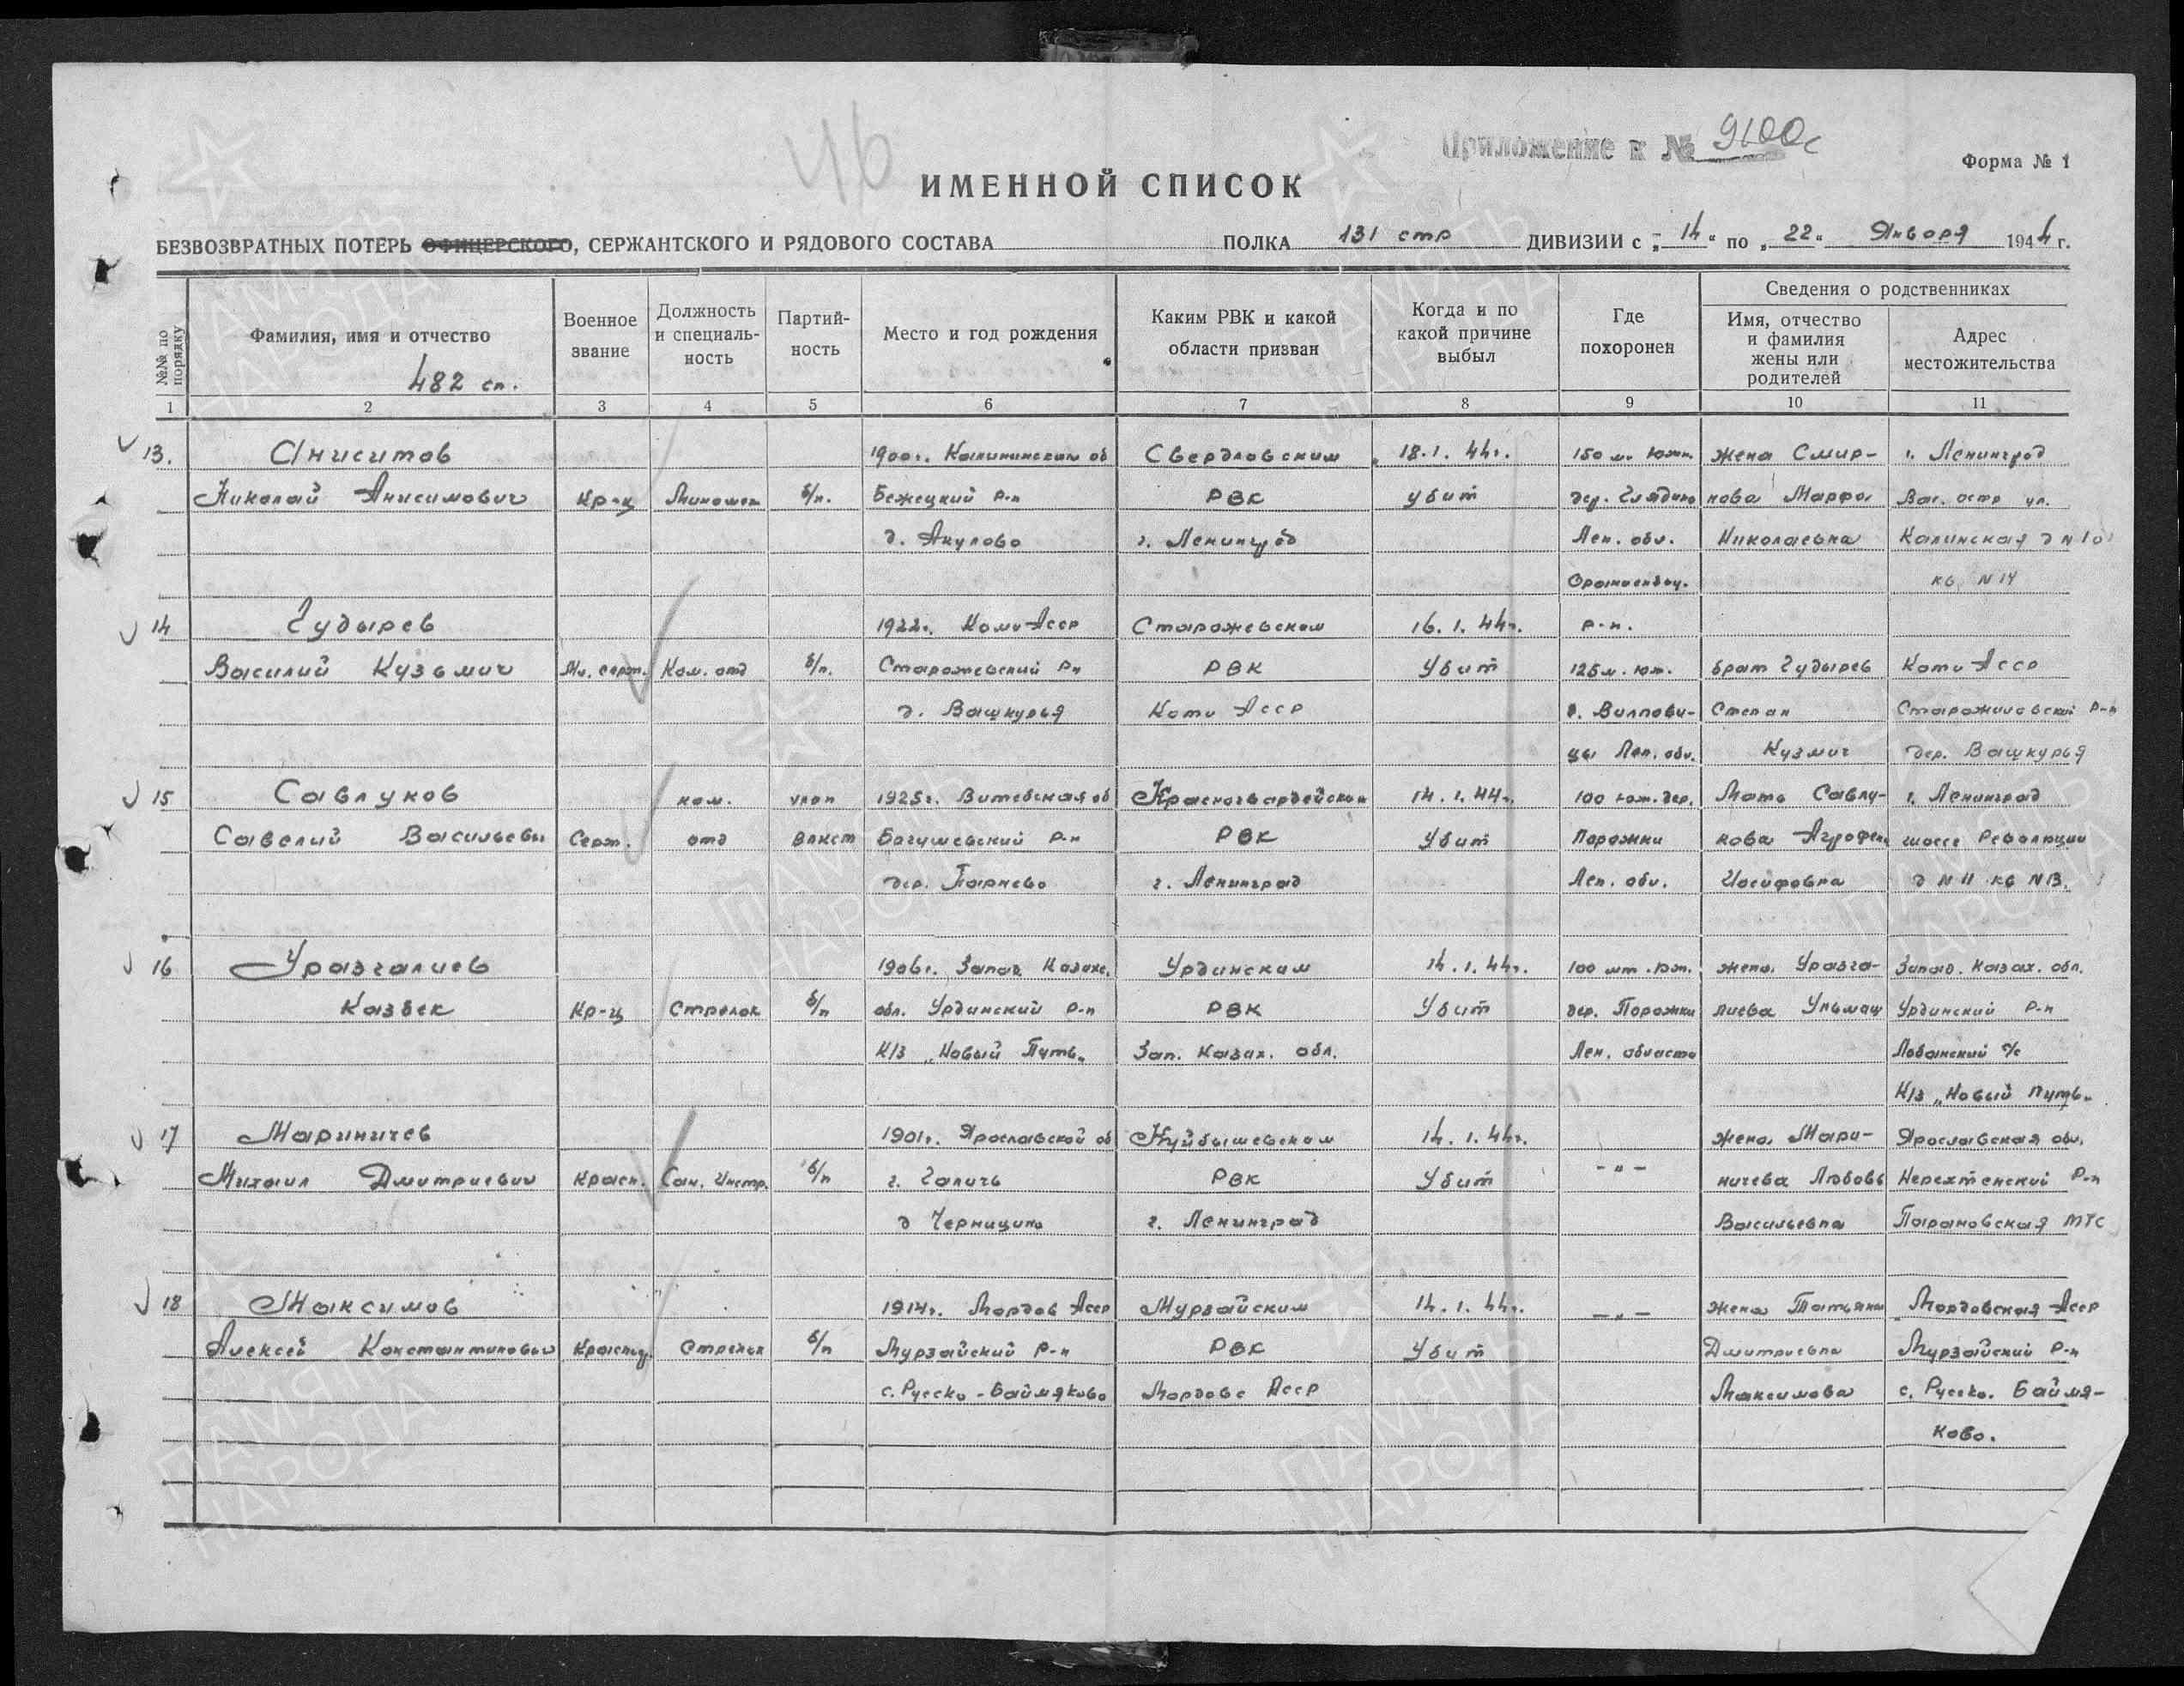 46
Приложение к № 9100с
Форма № 1
ИМЕННОЙ СПИСОК
БЕЗВОЗВРАТНЫХ ПОТЕРЬ ОФИЦЕРСКОГО, СЕРЖАНТСКОГО И РЯДОВОГО СОСТАВА ПОЛКА 131 стр ДИВИЗИИ с „14“ по „22“ Января 1944 г.
№№ по порядку
Фамилия, имя и отчество
482 сп.
Военное звание
Должность и специальность
Партийность
Место и год рождения
Каким РВК и какой области призван
Когда и по какой причине выбыл
Где похоронен
Сведения о родственниках
Имя, отчество и фамилия жены или родителей
Адрес местожительства
1 2 3 4 5 6 7 8 9 10 11
13. Анисимов 1900г. Калининской об Свердловским 18.1.44г. 150 м. Южн. жена Смир- г. Ленинград
Николай Анисимович Кр-ц Миномет б/п. Бежецкий р-н РВК убит дер. Глядино нова Марфа Вас. остр ул.
д. Акулово г. Ленинград Лен. обл. Николаевна Калинская д N 10
Ораниенбау. кв. N 14
14 Гудырев 1922г. Коми Асср Сторожевским 16.1.44г. р-н.
Василий Кузьмич Мл. серж. Ком. отд б/п. Сторожевский р-н РВК Убит 125 м. юж. брат Гудырев Коми Асср
д. Вашкурья Коми Асср Степан р-н
цы Лен. обл. Кузмич дер. Вашкурья
15 Савлуков ком. член 1925г. Витебская об Красногвардейским 14.1.44г. 100 юж. дер. Мать Савлу- г. Ленинград
Савелий Васильеви Серж. отд влксм Богушевский р-н РВК Убит Порожки кова шоссе Революции
дер. г. Ленинград Лен. обл. Иосифовна д N 11 кв N 13.
16 Уразгалиев 1906г. Запад. Казахс. Урдинским 14.1.44г. 100 мт. юж. жена Уразга- Запад. Казах. обл.
Казбек Кр-ц Стрелок б/п обл. Урдинский р-н РВК Убит дер. Порожки лиева Улмаш Урдинский р-н
К/з „Новый Путь„ Зап. Казах. обл. Лен. области с/с
К/з „Новый Путь„
17 Мариничев 1901г. Ярославской об Куйбышевским 14.1.44г. жена Мари- Ярославская обл.
Михаил Дмитриевич Красн. Сан. Инстр. б/п г. Галичь РВК Убит -"- ничева Любовь р-н
д Черницино г. Ленинград Васильевна МТС
18 Максимов 1914г. Мордов Асср Мурзайским 14.1.44г. -„- жена Татьяна Мордовская Асср
Алексей Константинович Стрелок б/п Мурзайский р-н РВК Убит Дмитриевна Мурзайский р-н
с. Русско-Баймяково Мордовс Асср Максимова с. Русско. Баймя-
ково.